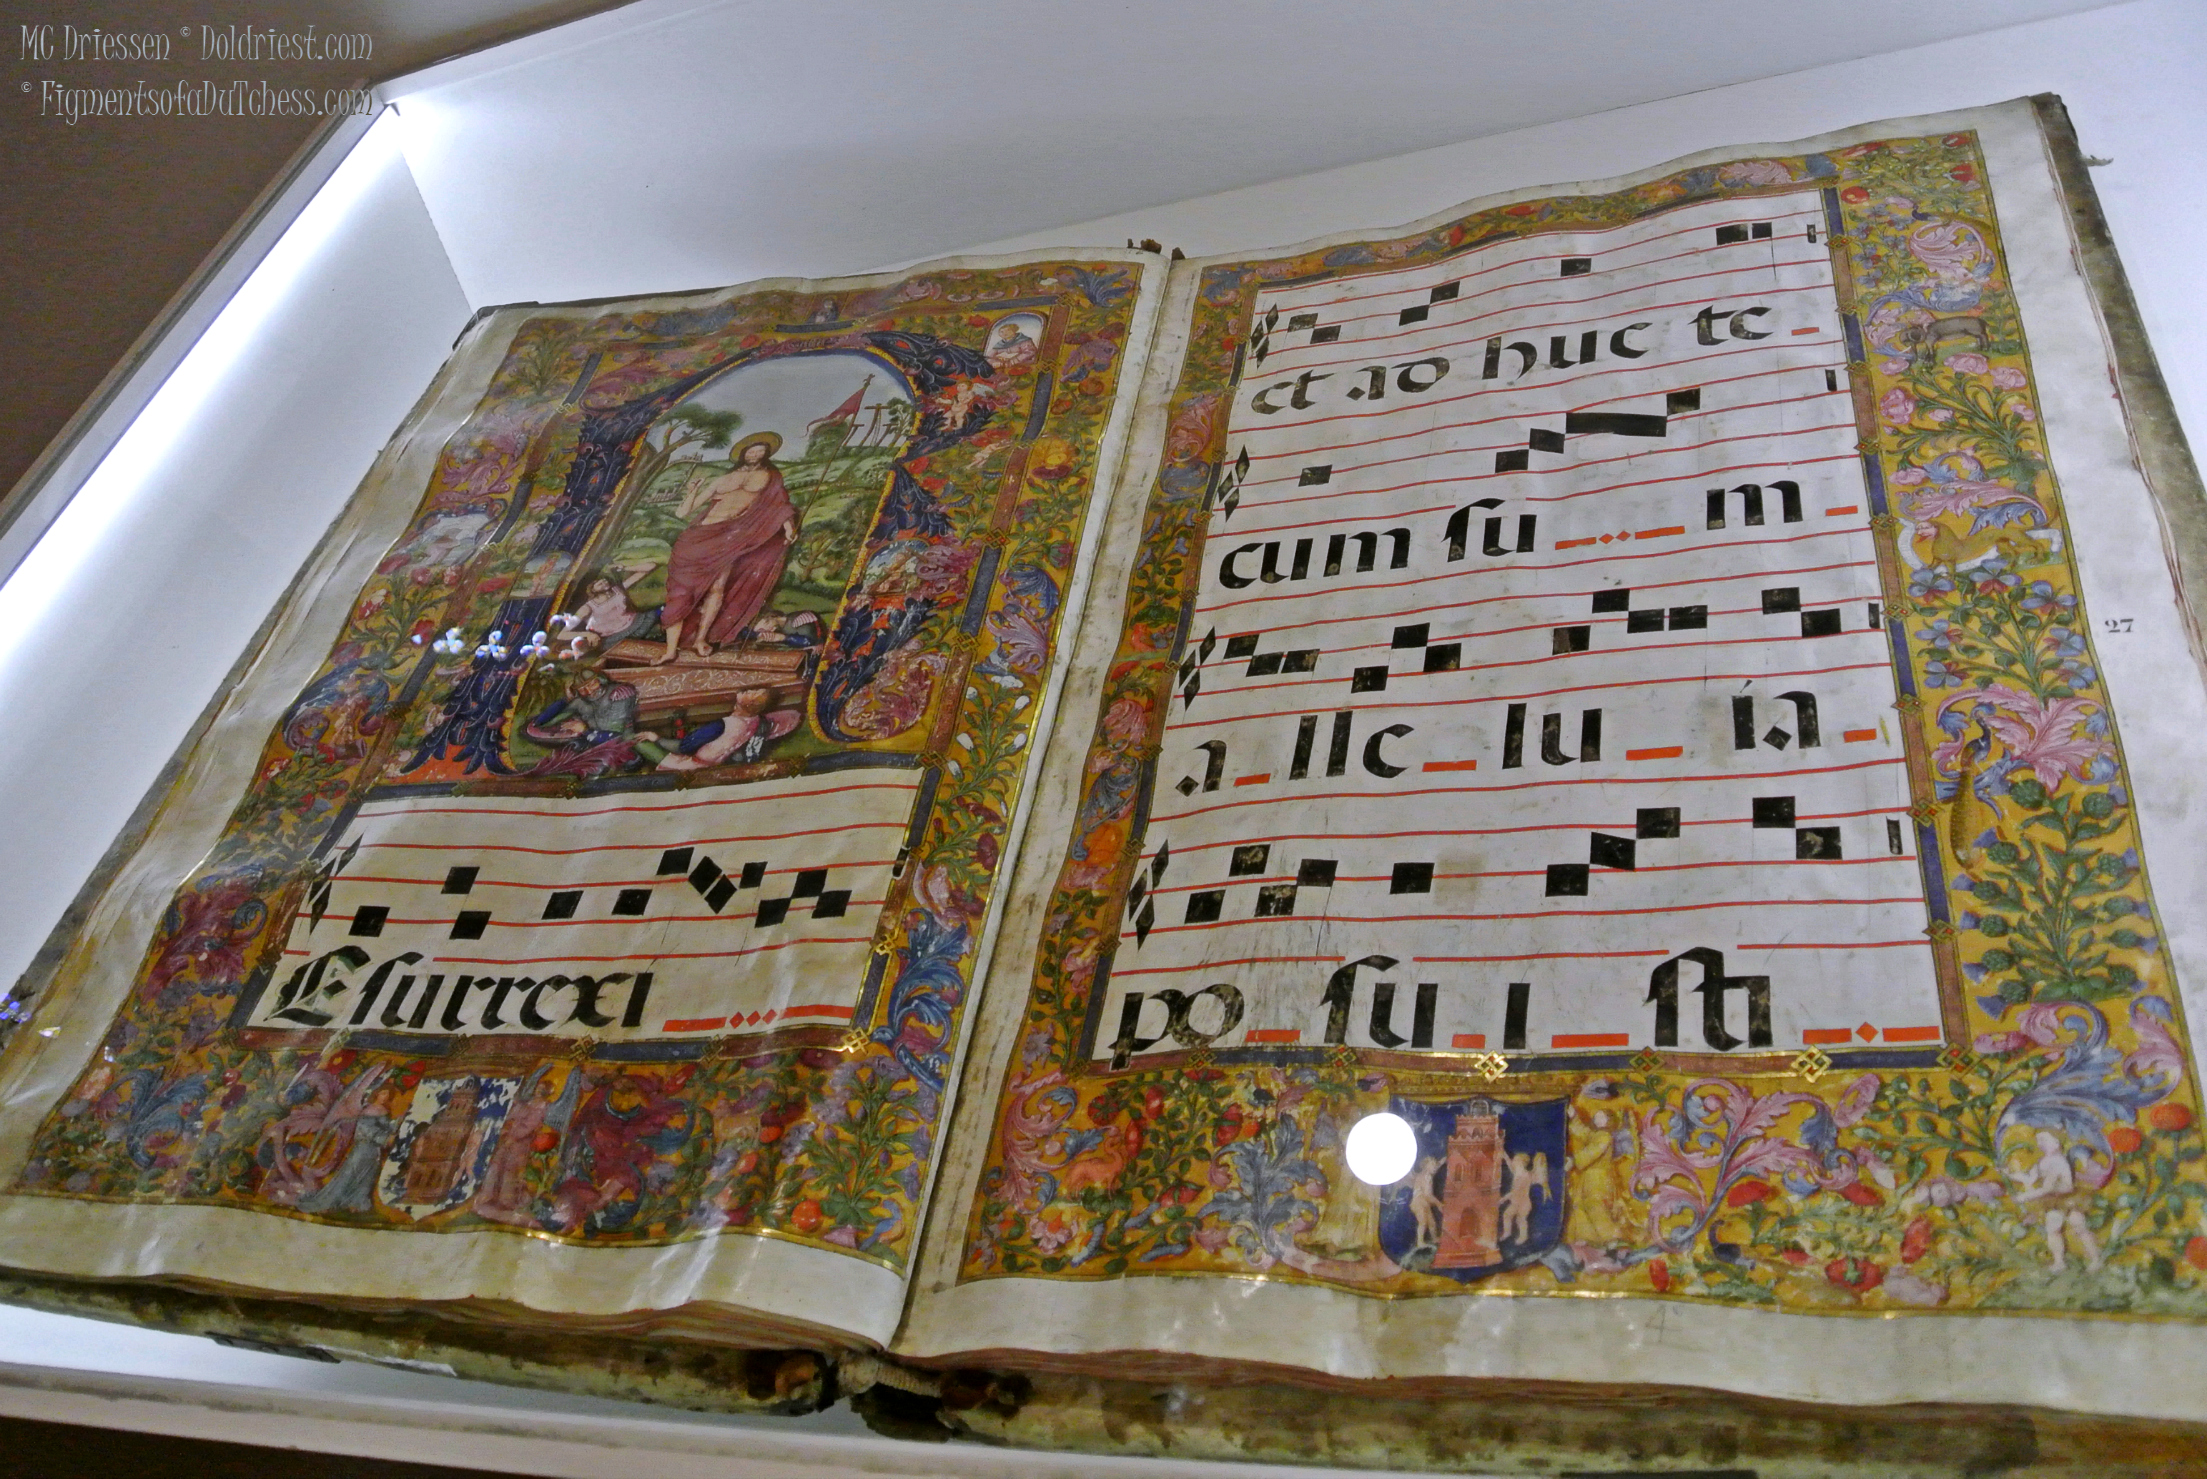 MC Driessen © Doldriest.com
© FigmentsofaDuTchess.com
Resurrexi
et ad huc te
cum su m
a lle lu ia
po su i sti
27